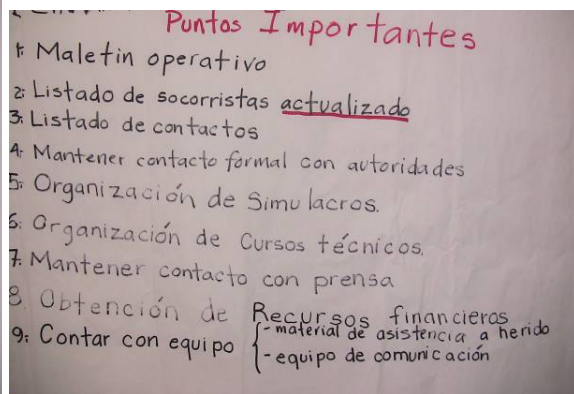 Puntos Importantes
1: Maletin operativo
2: Listado de socorristas actualizado
3: Listado de contactos
4: Mantener contacto formal con autoridades
5: Organización de Simulacros.
6: Organización de Cursos técnicos.
7: Mantener contacto con prensa
8. Obtención de Recursos financieros
9: Contar con equipo { - material de asistencia a herido
- equipo de comunicación